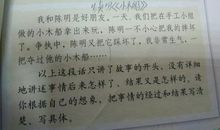 《小木船》
我和陈明是好朋友。一天，我们把在手工小组
做的小木船拿出来玩，陈明一不小心把我的摔坏
了。争执中，陈明又把它踩坏了。我非常生气，一
把夺过他的小木船……
以上这段话只讲了故事的开头，没有详细
地讲述事情后来怎样了，结果又是怎样的。请
你根据自己的想象，把事情的经过和结果写清
楚，写具体。